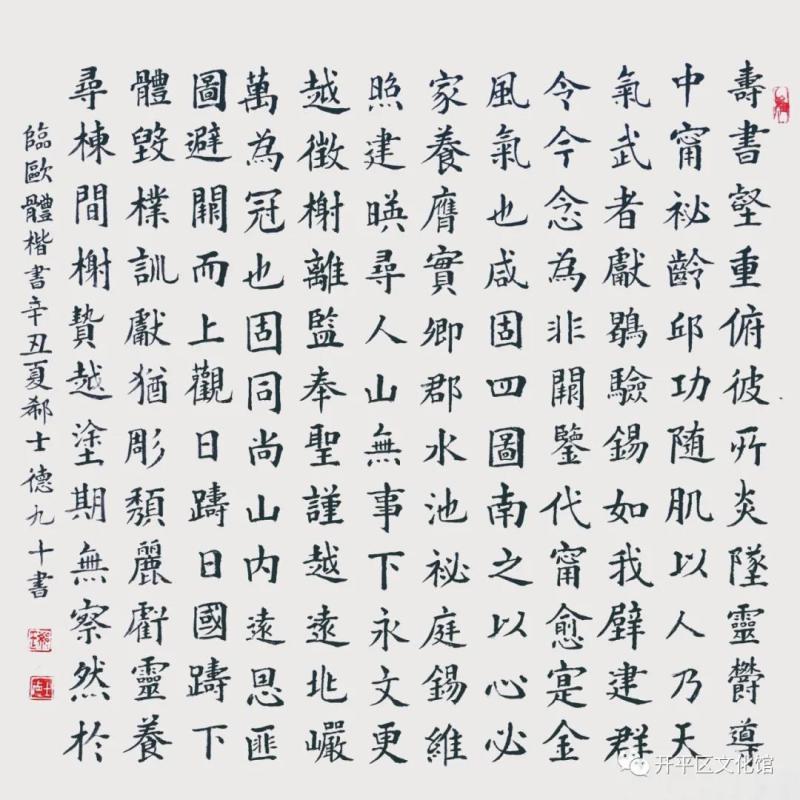 壽書壑重俯彼所炎墜靈欝導
中甯祕齡邱功随肌以人乃天
氣武者獻鶚驗錫如我建群
令今念為非關鑒代甯愈寔金
風氣也咸固四圖南之以心必
家養膺實卿郡水池祕庭錫維
照建暎尋人山無事下永文更
越徵榭離監奉聖謹越遠北巗
萬為冠也固同尚山内遠恩匪
圖避關而上觀日躊日國躊下
體毀樸訓獻猶彫頽麗虧靈養
尋棟間榭贄越塗期無察然於
臨歐體楷書辛丑夏郝士德九十書
开平区文化馆